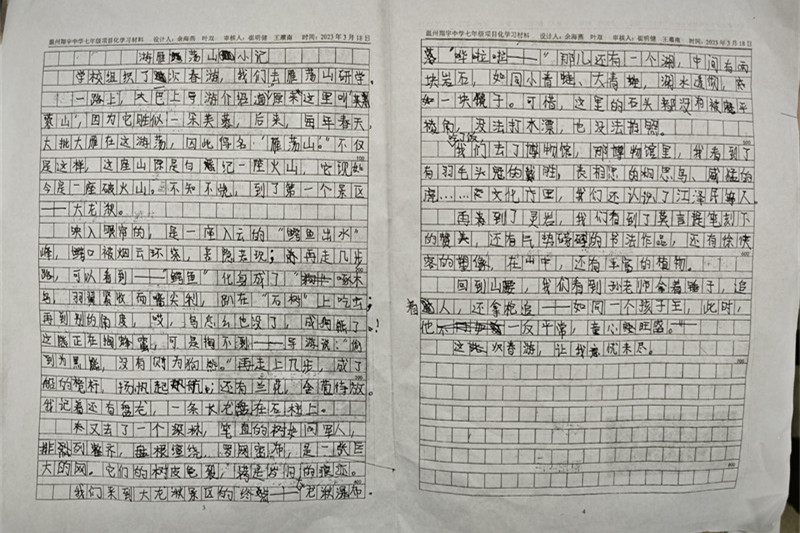 温州翔宇中学七年级项目化学习材料 设计人：余海燕 叶迎 审核人：崔明健 王雁南 时间：2023年3月18日
游雁荡山小记
学校组织了次春游，我们去雁荡山研学
一路上，大巴上导游介绍道原来这里叫“芙蓉
山”，因为它酷似一朵芙蓉，后来，每年春天，
大批大雁在这游荡，因此得名：“雁荡山。”不仅
是这样，这座山原是白垩纪一座火山，它现如
今是一座破火山。不知不觉，到了第一个景区
——大龙湫。
映入眼帘的，是一座入云的“鳄鱼出水”
峰，鳄口被烟云环绕，若隐若现；再走几步
路，可以看到——“鳄鱼”化身成了“啄木
鸟，羽翼紧收而嘴尖利，趴在“石树”上吃虫；
再到别的角度，哎，鸟怎么也没了，成狗熊了！
这熊正在掏蜂蜜，可是掏不到——导游说：“掏
到为黑熊，没有则为狗熊。”再走上几步，成了
船的桅杆，扬帆起航；还有兰花，含苞待放。
我记着还有盘龙，一条长龙盘在石柱上。
又去了一个
，笔直的树如同军人，
排列整齐，盘根错绕，密布，是一张巨
大的网。它们的树皮
我们来到大龙湫景区的终点——大龙湫瀑布
3
温州翔宇中学七年级项目化学习材料 设计人：余海燕 叶迎 审核人：崔明健 王雁南 时间：2023年3月18日
落“哗啦啦——”那儿还有一个湖，中间有两
块岩石，如同小青蛙、大青蛙，湖水透彻，宛
如一块镜子。可惜，这里的石头都没有被磨平
，没法打水漂，也没法拍照。
吃了饭
我们去了博物馆，那博物馆里，我看到了
有羽毛头冠的戴胜，表相思的相思鸟、威猛的
虎……在文化厅里，我们还认识了江泽民等人。
再来到了灵岩，我们看到了莫言提笔刻下
的赞美，还有气势磅礴的书法作品，还有徐侠
客的塑像，在山中，还有丰富的植物。
回到山腰，我们看到孙老师拿着鞭子，追
着人，还拿枪追——如同一个孩子王，此时，
他一反平常，童心旺盛。
这次春游，让我意犹未尽。
4